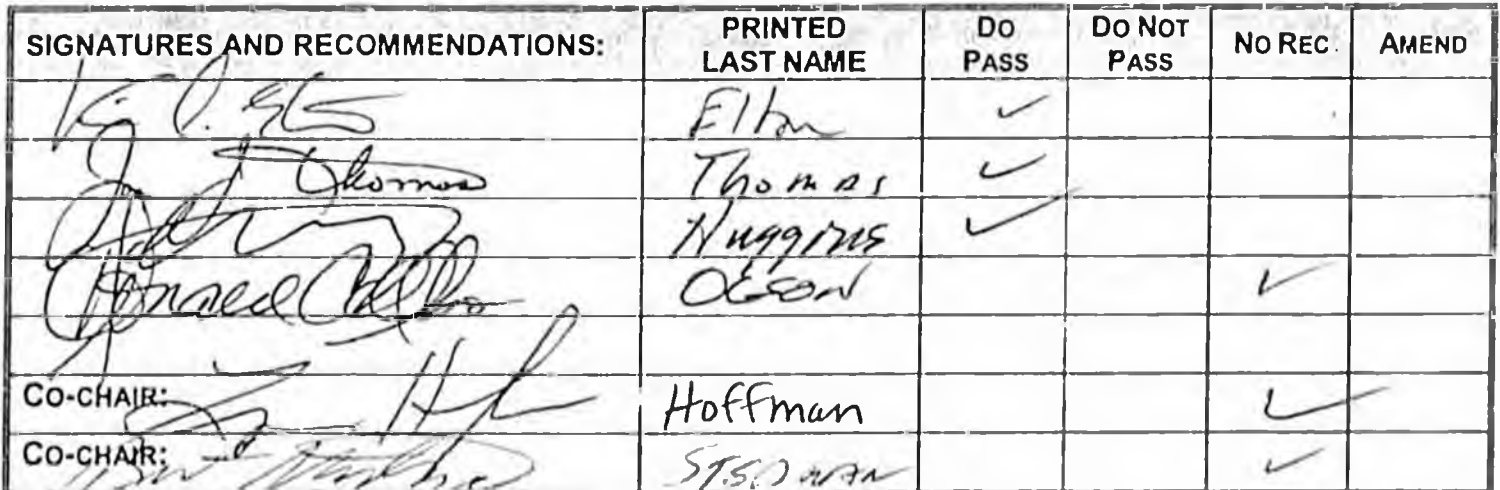 SIGNATURES AND RECOMMENDATIONS: PRINTED LAST NAME DO PASS DO NOT PASS NO REC. AMEND
Elton ✓
Thomas Thomas ✓
Huggins ✓
Donald Olson OLSON ✓
CO-CHAIR: Hoffman ✓
CO-CHAIR: ✓